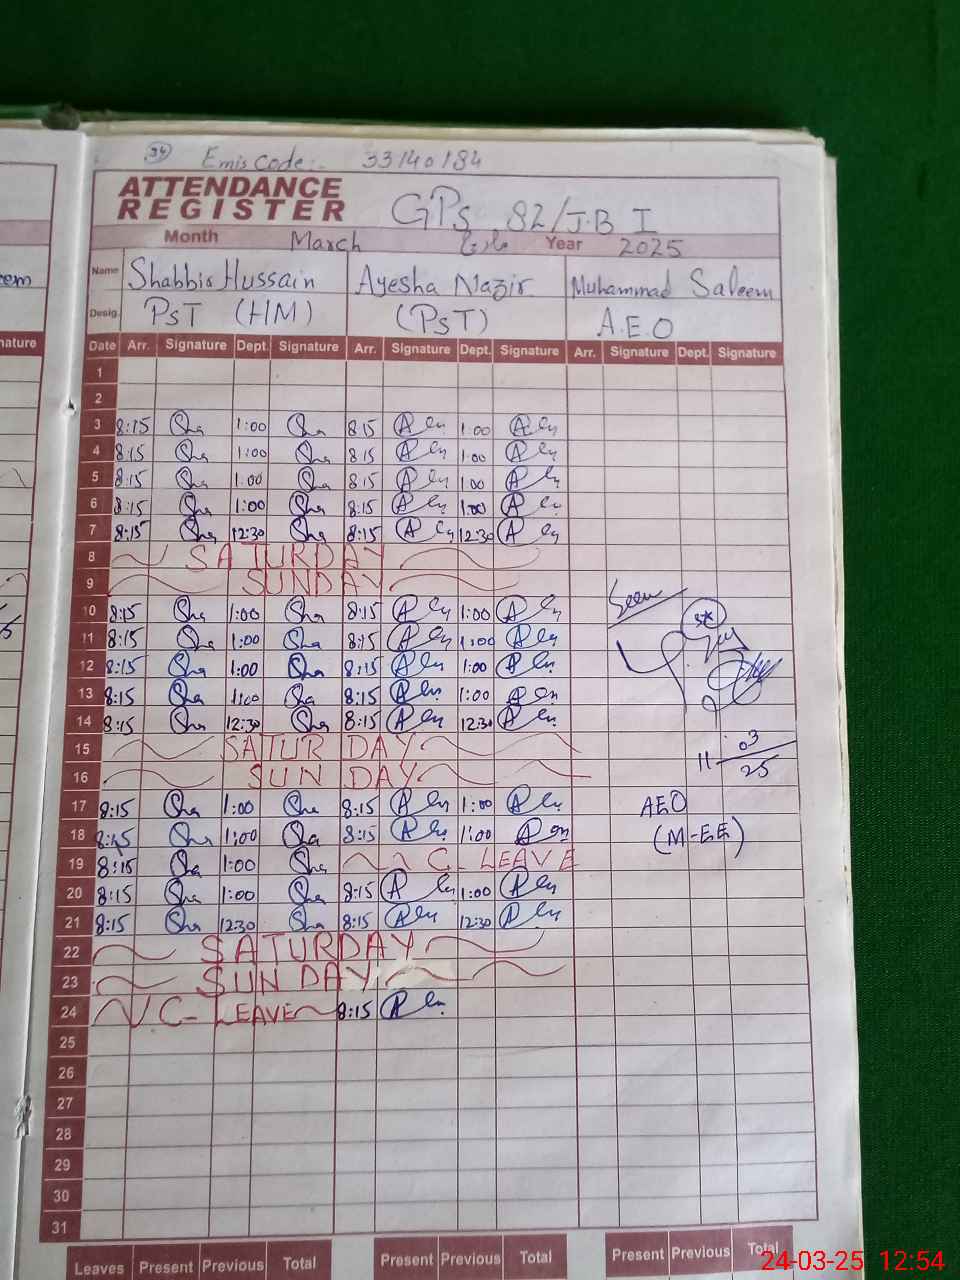 34 Emis Code:- 33140184
ATTENDANCE
REGISTER
GPs 82/J.B I
Month March Year 2025
Name Shabbir Hussain Ayesha Nazir Muhammad Saleem
Desig. PST (HM) (PST) A.E.O
Date Arr. Signature Dept. Signature Arr. Signature Dept. Signature Arr. Signature Dept. Signature
1
2
3 8:15 Sha 1:00 Sha 8:15 1:00
4 8:15 Sha 1:00 Sha 8:15 1:00
5 8:15 Sha 1:00 Sha 8:15 1:00
6 8:15 Sha 1:00 Sha 8:15 1:00
7 8:15 Sha 12:30 Sha 8:15 12:30
8 SATURDAY
9 SUNDAY
Seen
10 8:15 Sha 1:00 Sha 8:15 1:00
11 8:15 Sha 1:00 Sha 8:15 1:00
12 8:15 Sha 1:00 Sha 8:15 1:00
13 8:15 Sha 1:00 Sha 8:15 1:00
14 8:15 Sha 12:30 Sha 8:15 12:30
15 SATUR DAY
11 03/25
16 SUN DAY
17 8:15 Sha 1:00 Sha 8:15 1:00 AEO
18 8:15 Sha 1:00 Sha 8:15 1:00 (M-EE)
19 8:15 Sha 1:00 Sha C-LEAVE
20 8:15 Sha 1:00 Sha 8:15 1:00
21 8:15 Sha 12:30 Sha 8:15 12:30
22 SATURDAY
23 SUN DAY
24 C-LEAVE 8:15
25
26
27
28
29
30
31
Leaves Present Previous Total Present Previous Total Present Previous Total
24-03-25 12:54